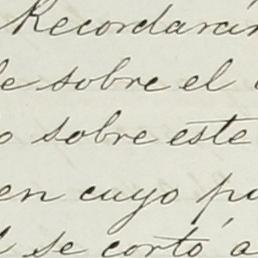 Recordarán
e sobre el
o sobre este
en cuyo po
l se cortó a